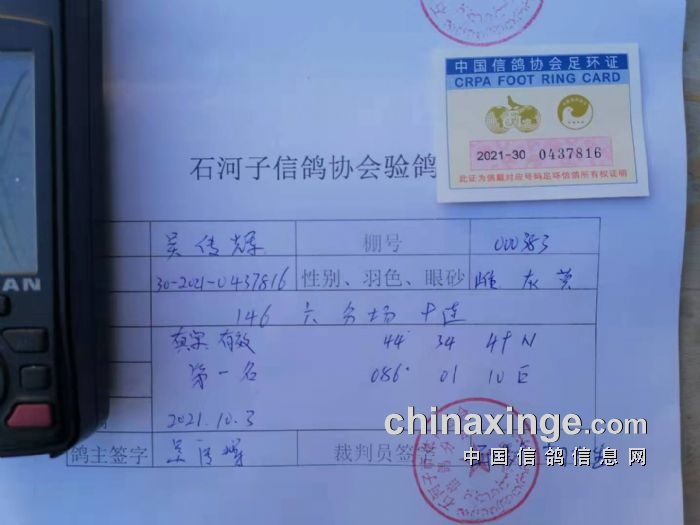 中国信鸽协会足环证
CRPA FOOT RING CARD
2021-30 0437816
此证为佩戴对应号码足环信鸽所有权证明
石河子信鸽协会验鸽
吴传辉 棚号 000383
30-2021-0437816 性别、羽色、眼砂 雌 灰 黄
AN
146 六分场 十连
真实有效 44 34 49 N
第一名 086° 01 10 E
2021.10.3
鸽主签字 裁判员签字
chinaxinge.com
中国信鸽信息网